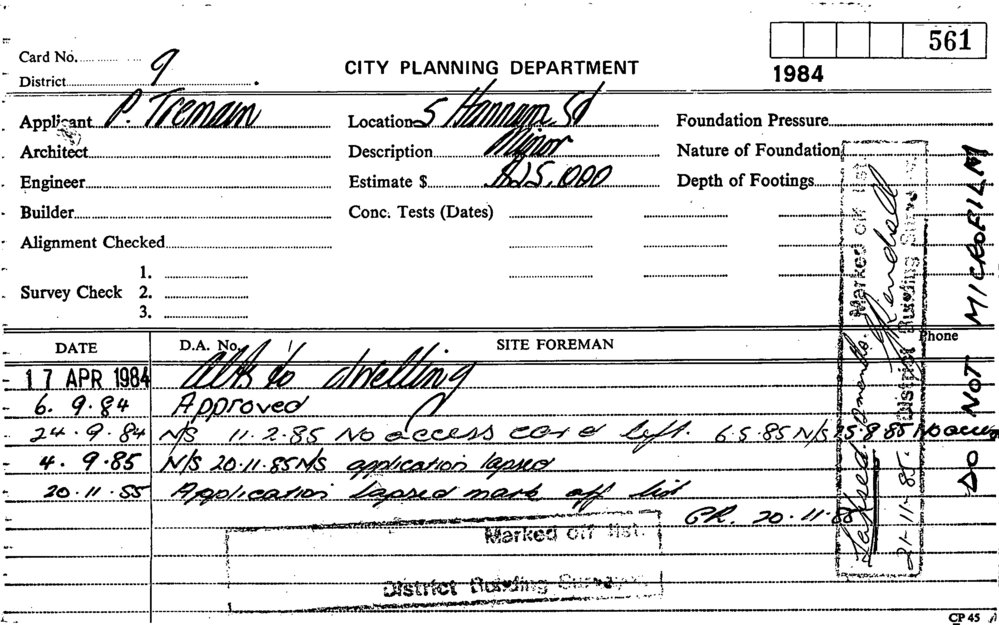 561
1984
Card No.
9
District
CITY PLANNING DEPARTMENT
Applicant P. Tremain
Location 5 Hannam St
Foundation Pressure
Architect
Description Minor
Nature of Foundation
Engineer
Estimate $ $25,000
Depth of Footings
Builder
Conc. Tests (Dates)
Alignment Checked
Survey Check
1.
2.
3.
DATE
D.A. No.
SITE FOREMAN
Phone
17 APR 1984 Alts to dwelling
6. 9.84 Approved
24.9.84 N/S 11.2.85 No access card left. 6.5.85 N/S 25.8.85 No access
4. 9.85 N/S 20.11.85 N/S application lapsed
20.11.85 Application lapsed mark off list
20.11.85
Marked off list.
District Building Surveyor
Marked off list
Lapsed
District Building
21-11-85
DO NOT MICROFILM
CP 45